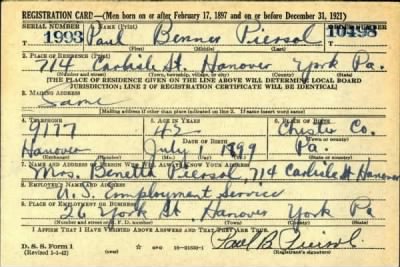 REGISTRATION CARD—(Men born on or after February 17, 1897 and on or before December 31, 1921)
SERIAL NUMBER 1. NAME (Print) ORDER NUMBER
1993 Paul Benner Piersol 10498
(First) (Middle) (Last)
2. PLACE OF RESIDENCE (Print)
714 Carlisle St. Hanover York Pa.
(Number and street) (Town, township, village, or city) (County) (State)
[THE PLACE OF RESIDENCE GIVEN ON THE LINE ABOVE WILL DETERMINE LOCAL BOARD
JURISDICTION; LINE 2 OF REGISTRATION CERTIFICATE WILL BE IDENTICAL]
3. MAILING ADDRESS
Same
[Mailing address if other than place indicated on line 2. If same insert word same]
4. TELEPHONE 5. AGE IN YEARS 6. PLACE OF BIRTH
9177 42 Chester Co.
DATE OF BIRTH (Town or county)
Hanover July 1 1899 Pa.
(Exchange) (Number) (Mo.) (Day) (Yr.) (State or country)
7. NAME AND ADDRESS OF PERSON WHO WILL ALWAYS KNOW YOUR ADDRESS
Mrs. Benetta Piersol, 714 Carlisle St Hanover
8. EMPLOYER'S NAME AND ADDRESS
U.S. Employment Service
9. PLACE OF EMPLOYMENT OR BUSINESS
26 York St. Hanover York Pa
(Number and street or R. F. D. number) (Town) (County) (State)
I AFFIRM THAT I HAVE VERIFIED ABOVE ANSWERS AND THAT THEY ARE TRUE.
D. S. S. Form 1
(Revised 1-1-42) (over) 16-21630-1
Paul B. Piersol
(Registrant's signature)